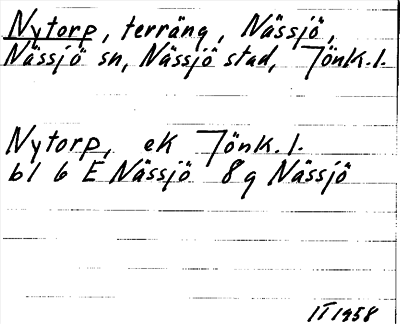 Nytorp, terräng, Nässjö,
Nässjö sn, Nässjö stad, Jönk.l.
Nytorp, ek Jönk.l.
bl 6 E Nässjö 8g Nässjö
II 1958